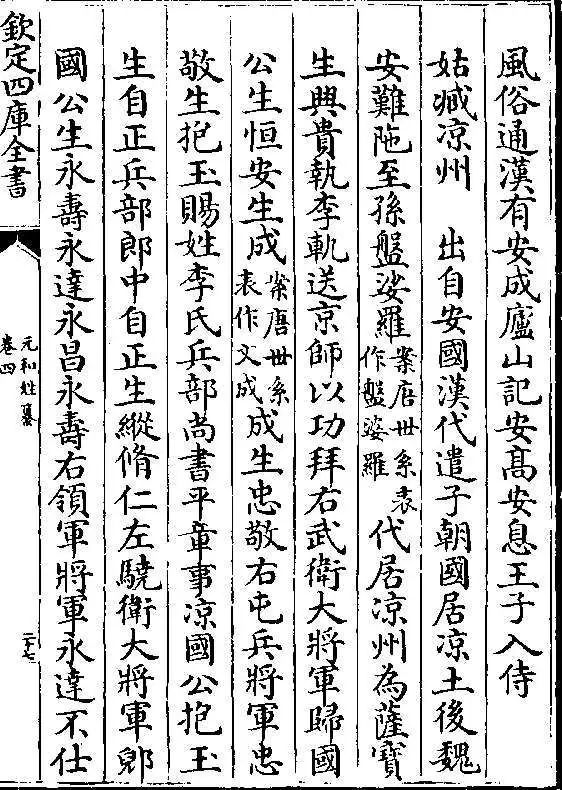 風俗通漢有安成廬山記安髙安息王子入侍
姑臧凉州　出自安國漢代遣子朝國居凉土後魏
安難陁至孫盤娑羅案唐世系表作盤婆羅代居凉州為薩寶
生興貴執李軌送京師以功拜右武衛大將軍歸國
公生恒安生成案唐世系表作文成成生忠敬右屯兵將軍忠
敬生抱玉賜姓李氏兵部尚書平章事凉國公抱玉
生自正兵部郎中自正生縱脩仁左驍衛大將軍鄎
國公生永壽永達永昌永壽右領軍將軍永達不仕
欽定四庫全書
元和姓纂
卷四
二十七